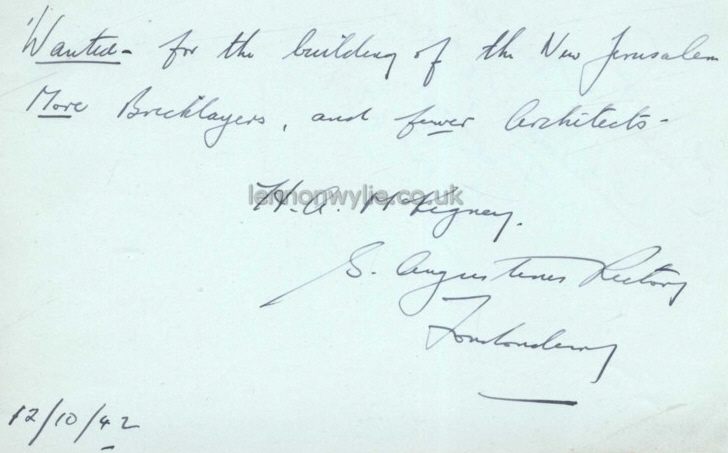 Wanted - for the building of the New Jerusalem
More Bricklayers, and fewer Architects -
lennonwylie.co.uk
H. A. McKegney.
S. Augustines Rectory
Londonderry
12/10/42